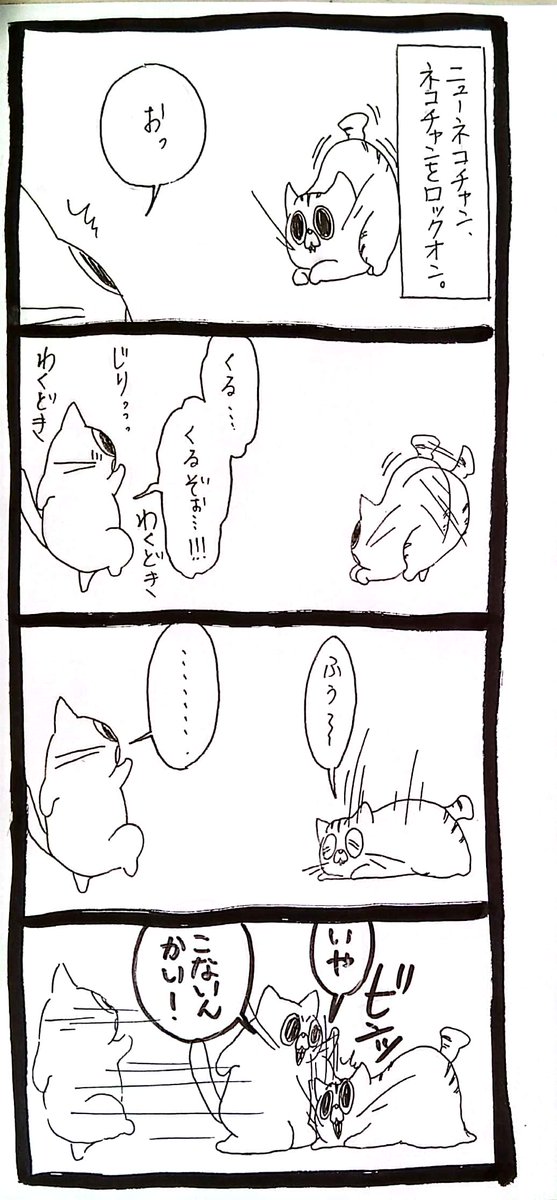 ニューネコチャン、
ネコチャンをロックオン。
おっ
くる…
くるぞぉ…!!!
じりっっっ
わくどき
わくどき
ふぅ〜
………
いや
こないん
かい!
ビシッ